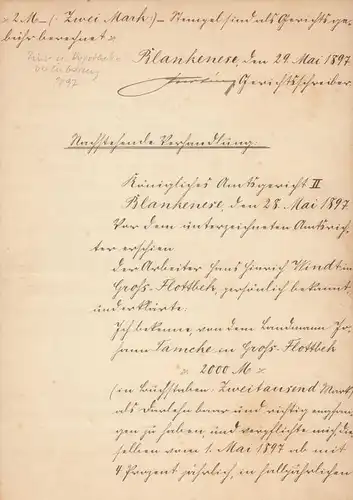 2 M - (: Zwei Mark :) - Stempel sind als Gerichtsge-
bühr berechnet
Blankenese, den 29. Mai 1897
Gerichtsschreiber.
97
Nachstehende Verhandlung:
Königliches Amtsgericht II
Blankenese, den 28. Mai 1897
Vor dem unterzeichneten Amtsrich-
ter erschien
der Arbeiter Hans Hinrich Windt in
Groß-Flottbek, persönlich bekannt
und erklärte:
Ich bekenne, von dem Landmann Jo-
hann Tamcke in Groß-Flottbek
2000 M
(in Buchstaben: Zweitausend Mark)
als Darlehn baar und richtig empfan-
gen zu haben, und verpflichte mich die-
selben vom 1. Mai 1897 ab mit
4 Prozent jährlich, in halbjährlichen